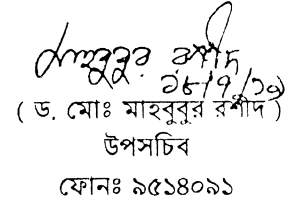 মাহবুবুর রশীদ
১৮/৭/১০
( ড. মোঃ মাহবুবুর রশীদ )
উপসচিব
ফোনঃ ৯৫১৪০৯১